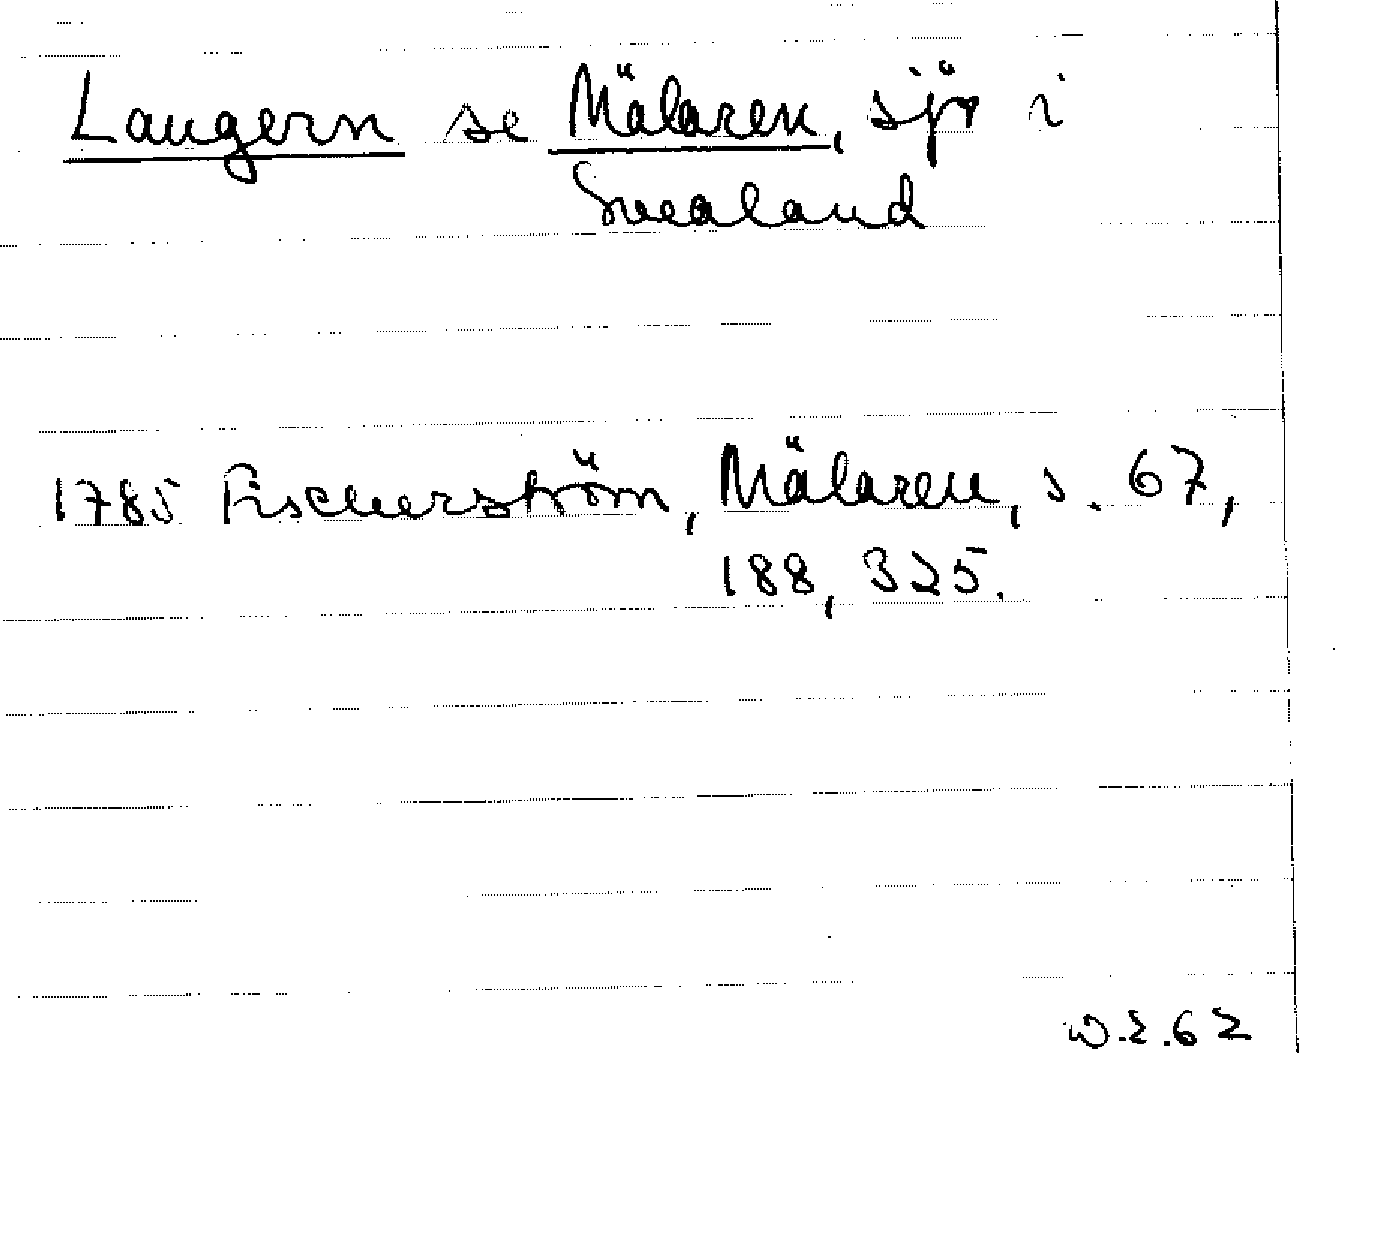 Langern se Mälaren, sjö i
Svealand
1785 Fischerström, Mälaren, s. 67,
188, 325.
W.E.62